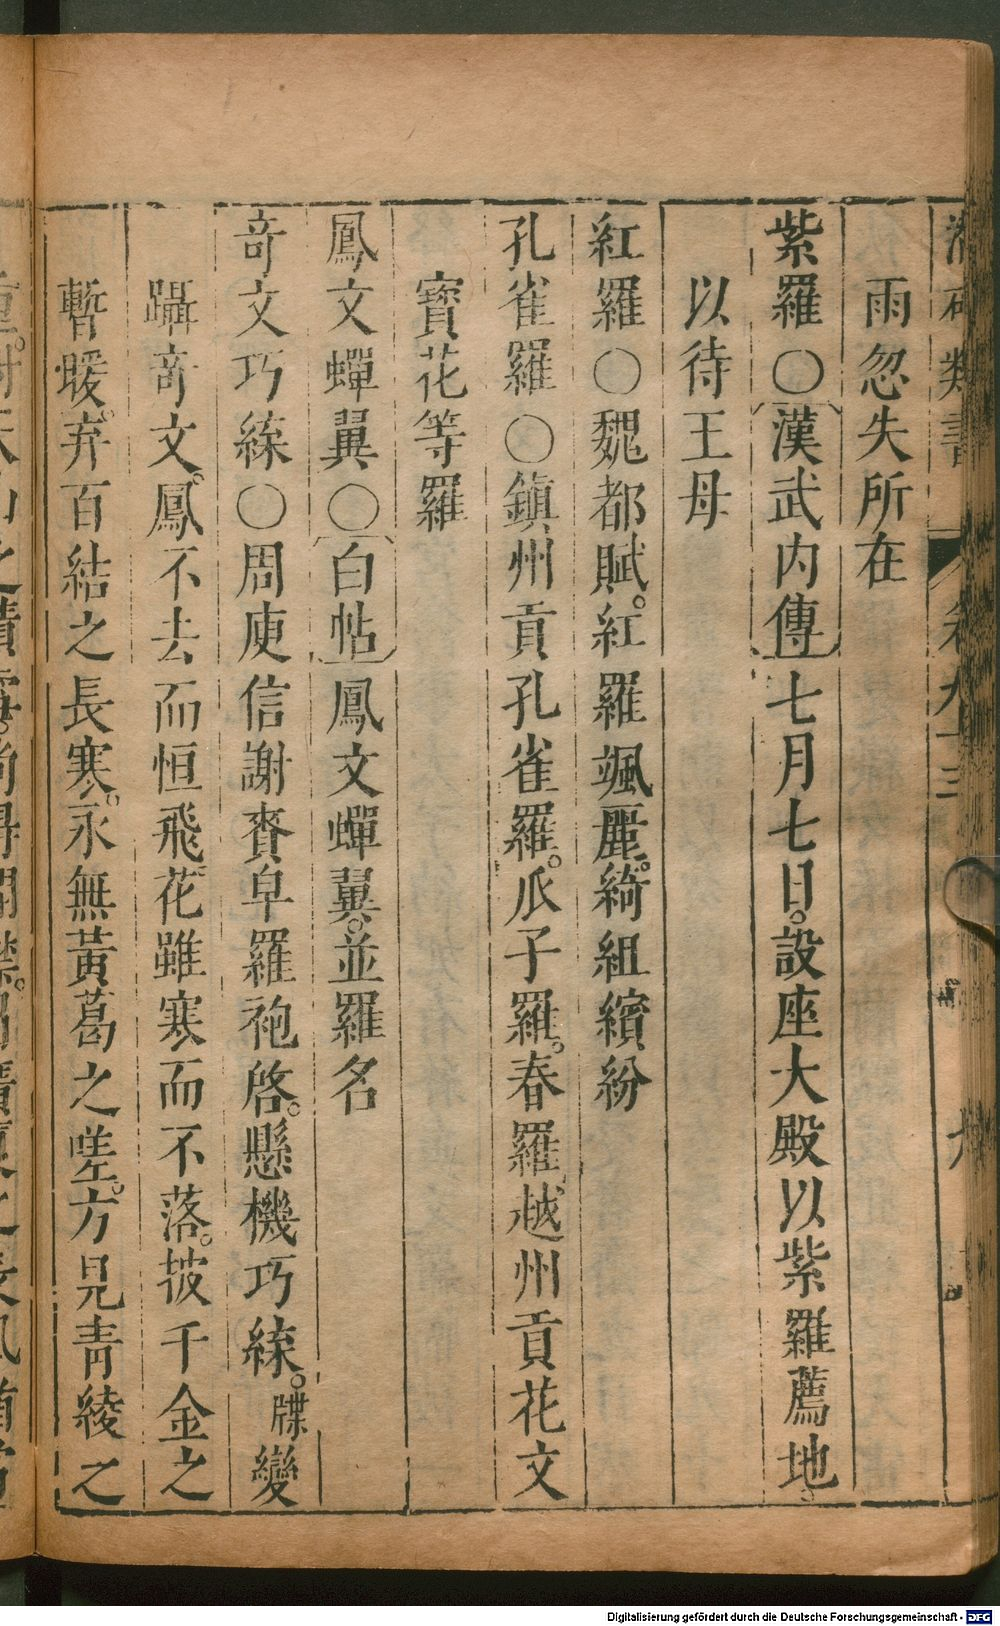 類書
雨忽失所在
紫羅〇漢武内傳七月七日。設座大殿以紫羅薦地
以待王母
紅羅〇魏都賦。紅羅颯麗。綺組繽紛
孔雀羅〇鎮州貢孔雀羅。瓜子羅。春羅、越州貢花文
寳花等羅
鳳文蟬翼〇白帖鳳文蟬翼。並羅名
竒文巧綵〇周庾信謝賚皁羅袍啓。懸機巧綵。牒變
躡竒文。鳳不去而恒飛花雖寒而不落。披千金之
暫暖。弃百結之長寒。永無黃葛之嗟。方見青綾之
Digitalisierung gefördert durch die Deutsche Forschungsgemeinschaft - DFG